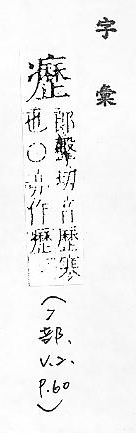 字彙
瘞 郎擊切音歷瘰
也○亦作癧
(疒部.
V.2.
P.60)